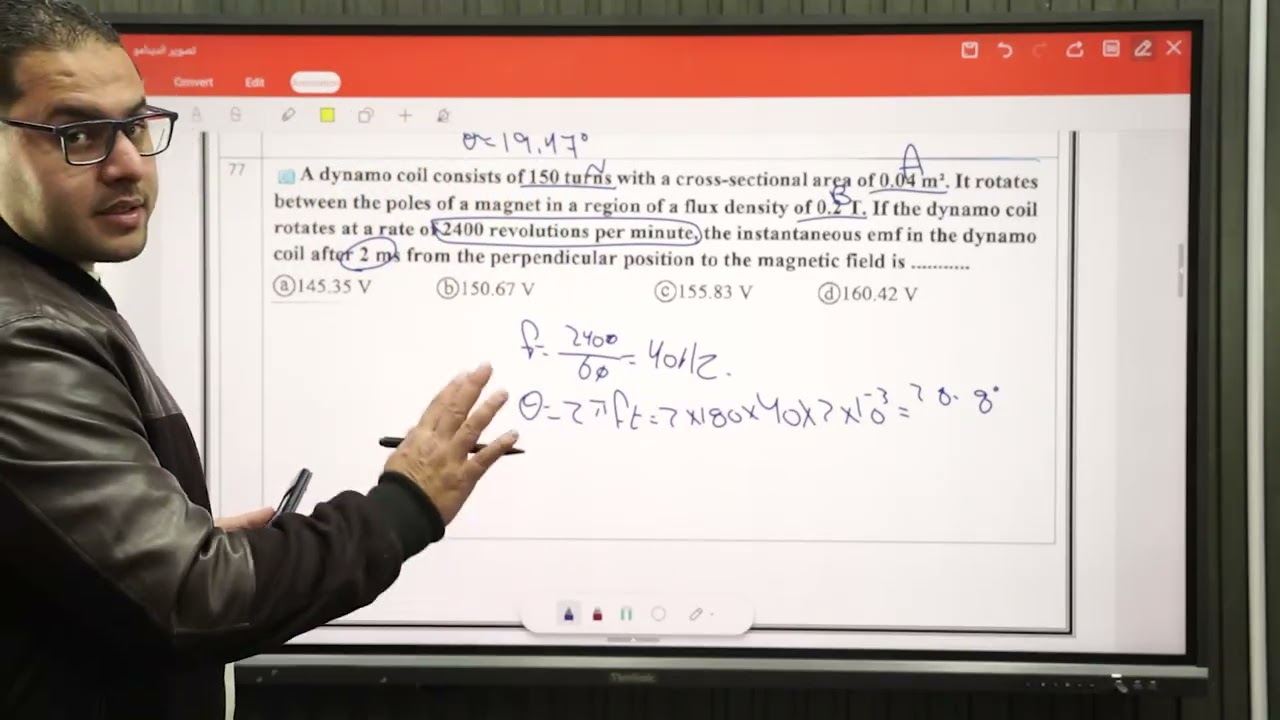 تصوير الدينامو
Convert Edit Annotation
θ≈19.47°
77
A dynamo coil consists of 150 turns with a cross-sectional area of 0.04 m². It rotates
between the poles of a magnet in a region of a flux density of 0.2 T. If the dynamo coil
rotates at a rate of 2400 revolutions per minute, the instantaneous emf in the dynamo
coil after 2 ms from the perpendicular position to the magnetic field is ...........
N A B
ⓐ145.35 V ⓑ150.67 V ⓒ155.83 V ⓓ160.42 V
f = 2400/60 = 40Hz.
θ = 2πft = 2×180×40×2×10⁻³ = 28.8°
ViewSonic